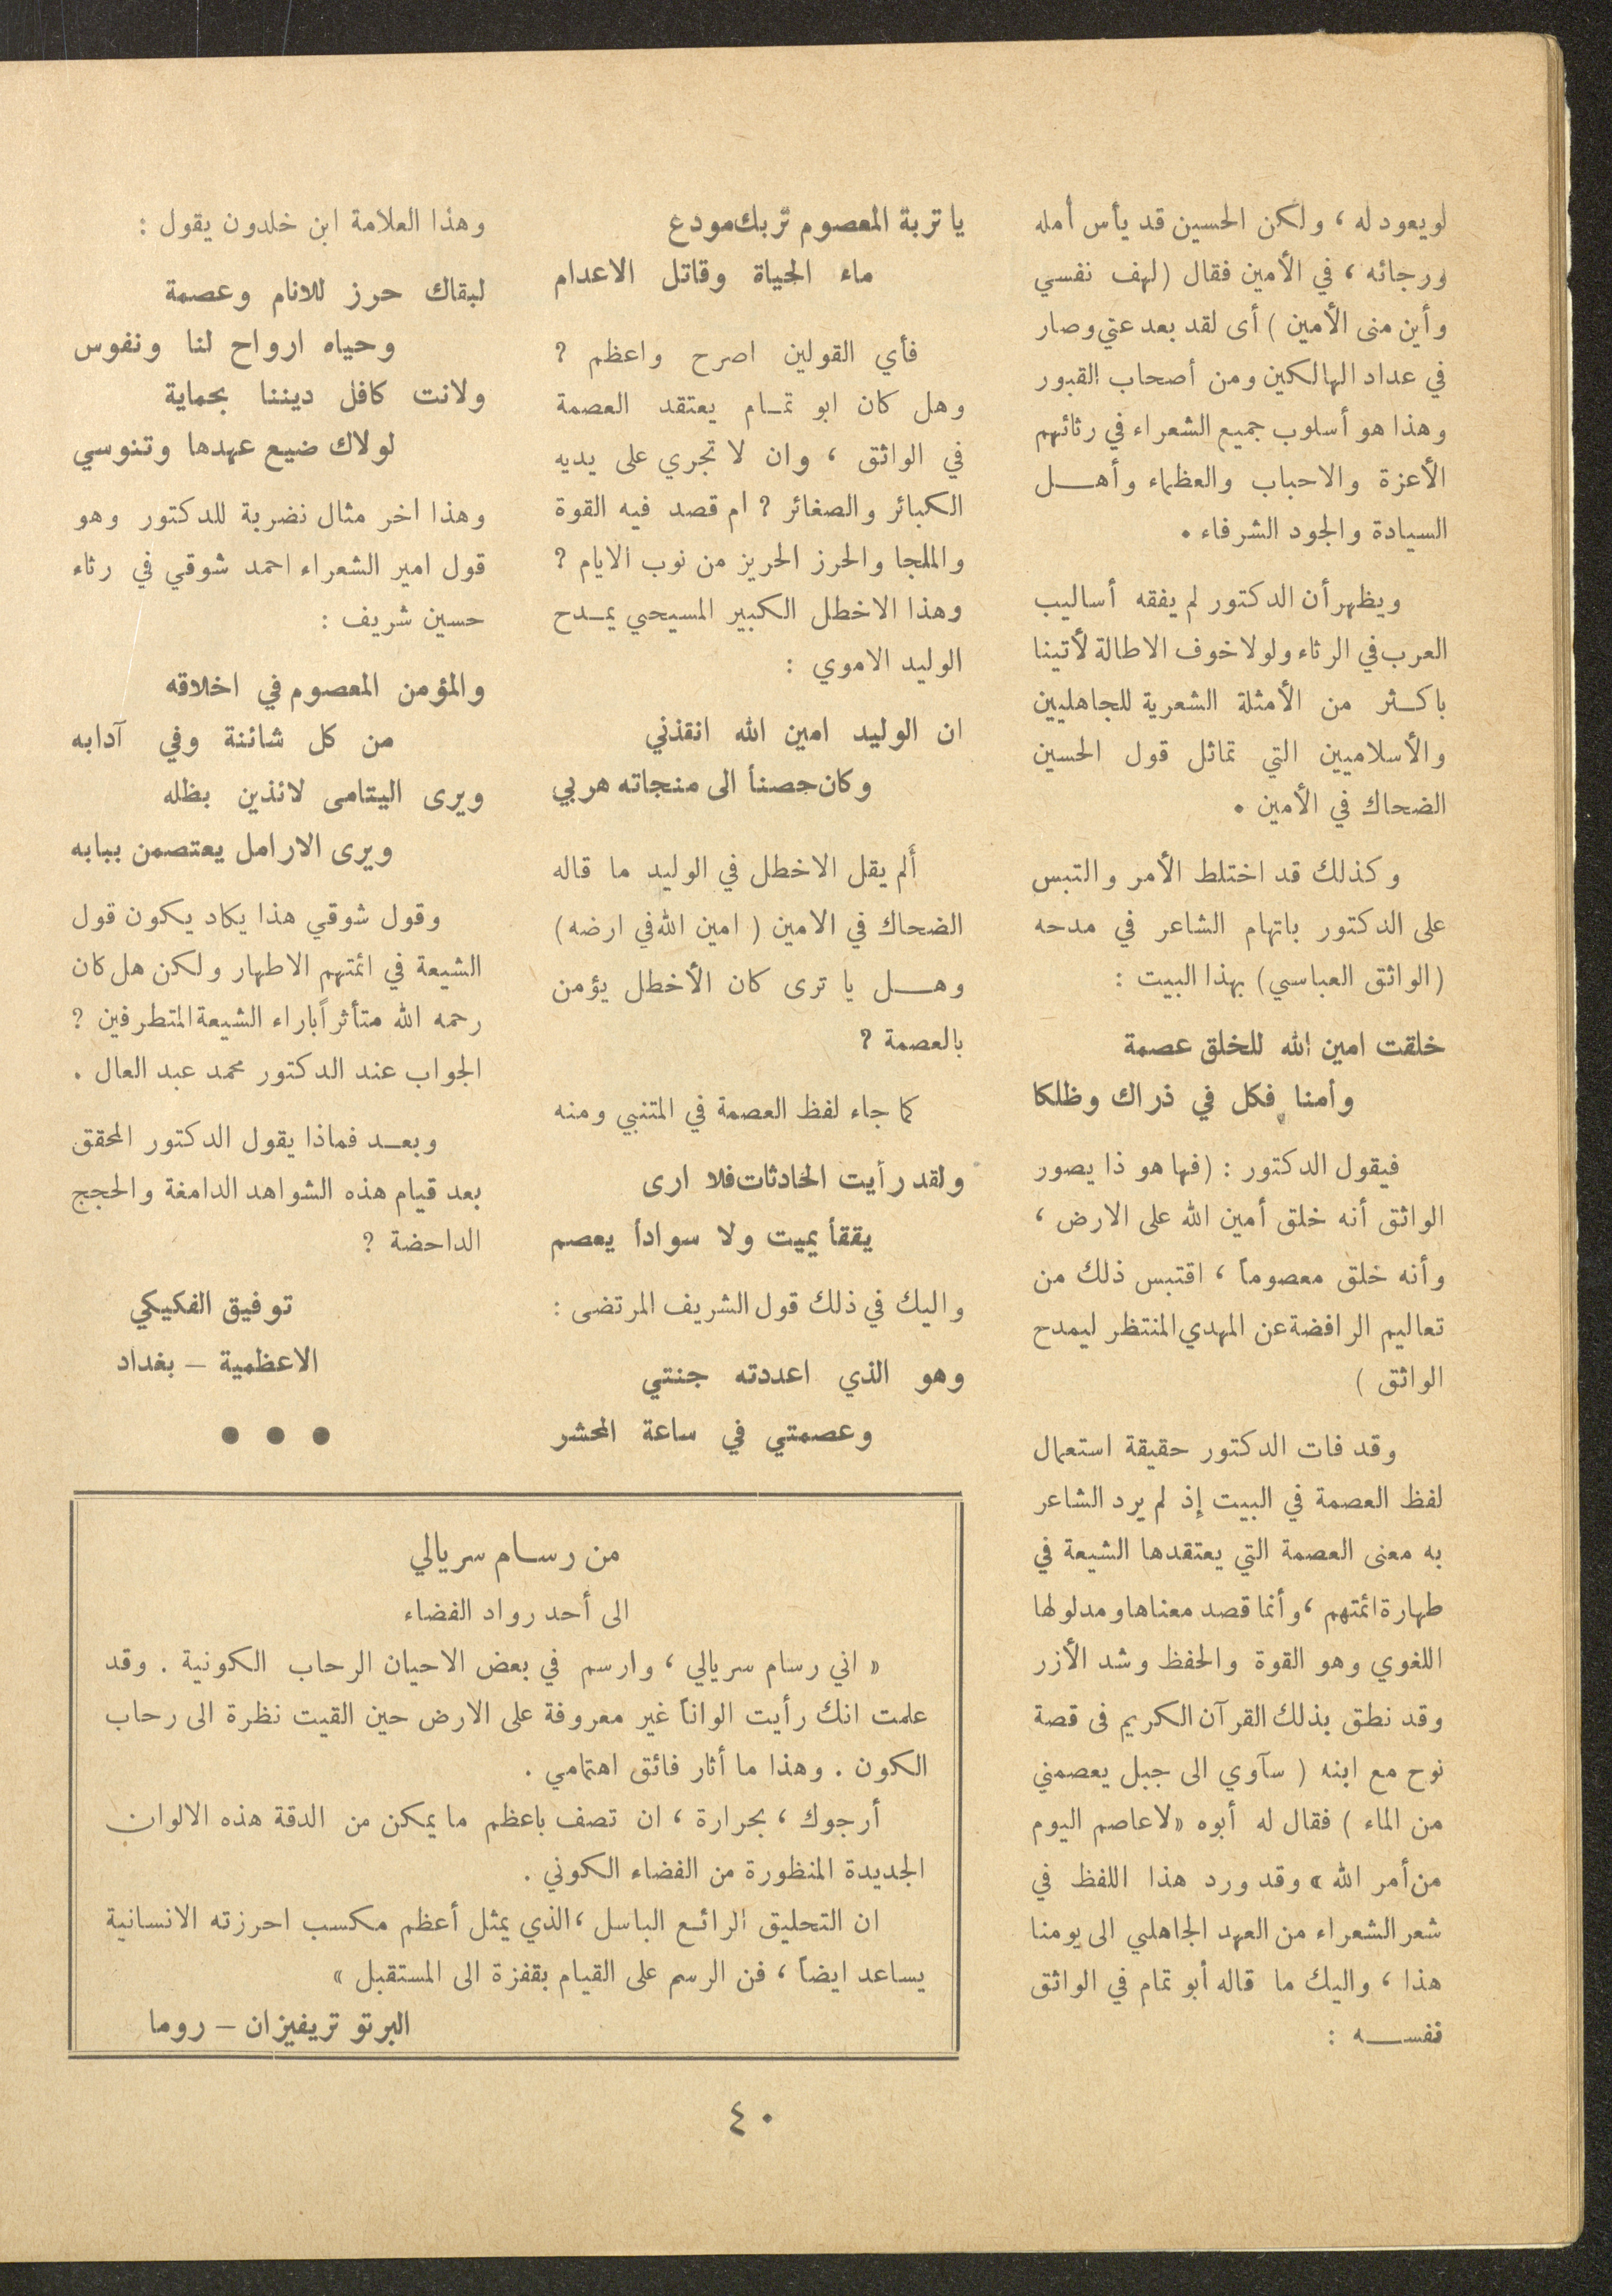 لو يعود له ، ولكن الحسين قد يأس أمله
ورجائه ، في الأمين فقال (لهف نفسي
وأين منى الأمين ) أى لقد بعد عني وصار
في عداد الهالكين ومن أصحاب القبور
وهذا هو أسلوب جميع الشعراء في رثائهم
الأعزة والاحباب والعظماء وأهل
السيادة والجود الشرفاء .
ويظهر أن الدكتور لم يفقه أساليب
العرب في الرثاء ولولا خوف الاطالة لأتينا
باكثر من الأمثلة الشعرية للجاهليين
والأسلاميين التي تماثل قول الحسين
الضحاك في الأمين .
وكذلك قد اختلط الأمر والتبس
على الدكتور باتهام الشاعر في مدحه
(الواثق العباسي) بهذا البيت :
خلقت امين الله للخلق عصمة
وأمنا فكل في ذراك وظلكا
فيقول الدكتور : (فها هو ذا يصور
الواثق أنه خلق أمين الله على الارض ،
وأنه خلق معصوماً ، اقتبس ذلك من
تعاليم الرافضة عن المهدي المنتظر ليمدح
الواثق )
وقد فات الدكتور حقيقة استعمال
لفظ العصمة في البيت إذ لم يرد الشاعر
به معنى العصمة التي يعتقدها الشيعة في
طهارة ائمتهم ، وأنما قصد معناها ومدلولها
اللغوي وهو القوة والحفظ وشد الأزر
وقد نطق بذلك القرآن الكريم فى قصة
نوح مع ابنه ( سآوي الى جبل يعصمني
من الماء ) فقال له أبوه «لا عاصم اليوم
من أمر الله » وقد ورد هذا اللفظ في
شعر الشعراء من العهد الجاهلي الى يومنا
هذا ، واليك ما قاله أبو تمام في الواثق
نفسه :
يا تربة المعصوم تربك مودع
ماء الحياة وقاتل الاعدام
فأي القولين اصرح واعظم ؟
وهل كان ابو تمام يعتقد العصمة
في الواثق ، وان لا تجري على يديه
الكبائر والصغائر ؟ ام قصد فيه القوة
والملجا والحرز الحريز من نوب الايام ؟
وهذا الاخطل الكبير المسيحي يمدح
الوليد الاموي :
ان الوليد امين الله انقذني
وكان حصناً الى منجاته هربي
أَلم يقل الاخطل في الوليد ما قاله
الضحاك في الامين ( امين الله في ارضه)
وهل يا ترى كان الأخطل يؤمن
بالعصمة ؟
كما جاء لفظ العصمة في المتنبي ومنه
ولقد رأيت الحادثات فلا ارى
يققاً يميت ولا سواداً يعصم
واليك في ذلك قول الشريف المرتضى :
وهو الذي اعددته جنتي
وعصمتي في ساعة المحشر
وهذا العلامة ابن خلدون يقول :
لبقاك حرز للانام وعصمة
وحياه ارواح لنا ونفوس
ولانت كافل ديننا بحماية
لولاك ضيع عهدها وتنوسي
وهذا اخر مثال نضربة للدكتور وهو
قول امير الشعراء احمد شوقي في رثاء
حسين شريف :
والمؤمن المعصوم في اخلاقه
من كل شائنة وفي آدابه
ويرى اليتامى لائذين بظله
ويرى الارامل يعتصمن ببابه
وقول شوقي هذا يكاد يكون قول
الشيعة في ائمتهم الاطهار ولكن هل كان
رحمه الله متأثراً باراء الشيعة المتطرفين ؟
الجواب عند الدكتور محمد عبد العال .
وبعد فماذا يقول الدكتور المحقق
بعد قيام هذه الشواهد الدامغة والحجج
الداحضة ؟
توفيق الفكيكي
الاعظمية – بغداد
● ● ●
من رسام سريالي
الى أحد رواد الفضاء
« اني رسام سريالي ، وارسم في بعض الاحيان الرحاب الكونية . وقد
علمت انك رأيت الواناً غير معروفة على الارض حين القيت نظرة الى رحاب
الكون . وهذا ما أثار فائق اهتمامي .
أرجوك ، بحرارة ، ان تصف باعظم ما يمكن من الدقة هذه الالوان
الجديدة المنظورة من الفضاء الكوني .
ان التحليق الرائع الباسل ، الذي يمثل أعظم مكسب احرزته الانسانية
يساعد ايضاً ، فن الرسم على القيام بقفزة الى المستقبل »
البرتو تريفيزان – روما
٤٠